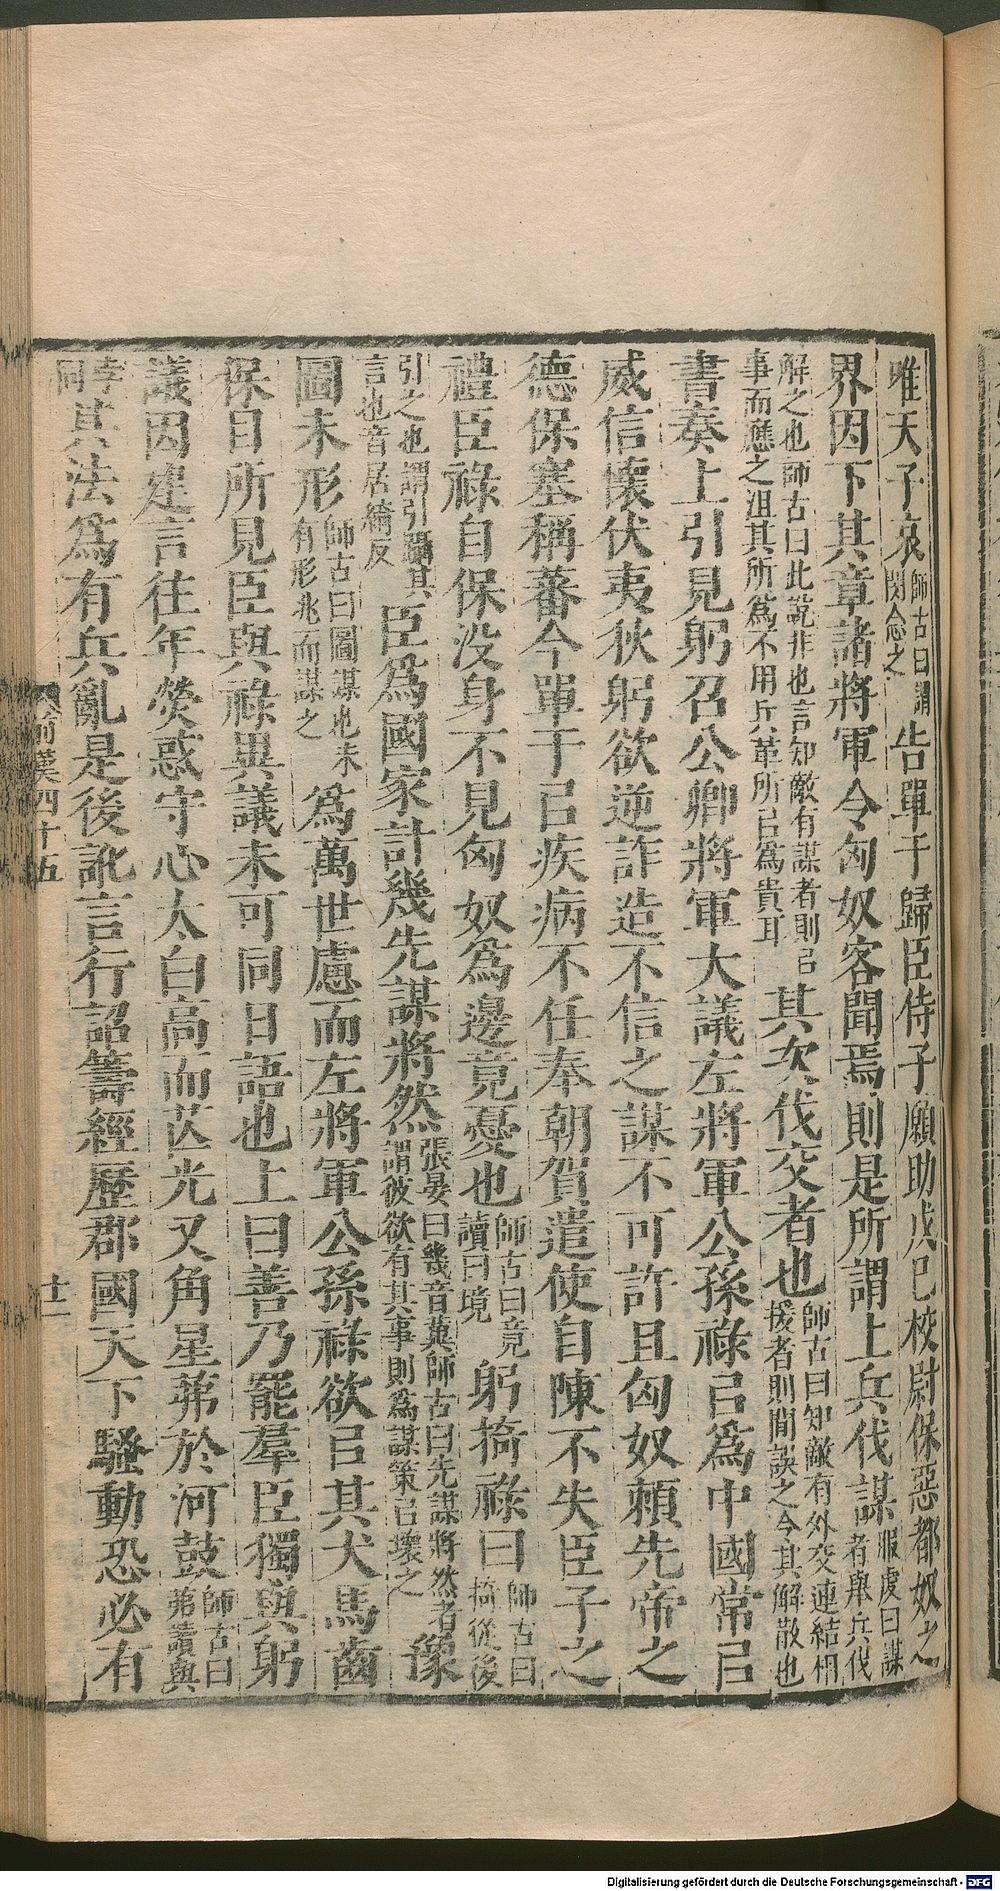 唯天子哀師古曰謂閔念之告單于歸臣侍子願助戊巳校尉保惡都奴之
界因下其章諸將軍令匈奴客聞焉則是所謂上兵伐謀服虔曰謀者舉兵伐
解之也師古曰此說非也言知敵有謀者則㠯事而應之沮其所爲不用兵革所㠯爲貴耳其次伐交者也師古曰知敵有外交連結相援者則間誤之令其解散也
書奏上引見躬召公卿將軍大議左將軍公孫祿㠯爲中國常㠯
威信懷伏夷狄躬欲逆詐造不信之謀不可許且匈奴賴先帝之
德保塞稱蕃今單于㠯疾病不任奉朝賀遣使自陳不失臣子之
禮臣祿自保没身不見匈奴爲邊竟憂也師古曰竟讀曰境躬掎祿曰師古曰掎從後
引之也謂引躡其言也音居綺反臣爲國家計幾先謀將然張晏曰幾音冀師古曰先謀將然者謂彼欲有其事則爲謀策㠯壞之豫
圖未形師古曰圖謀也未有形兆而謀之爲萬世慮而左將軍公孫祿欲㠯其犬馬齒
保目所見臣與祿異議未可同日語也上曰善乃罷羣臣獨與躬
議因建言往年熒惑守心太白高而芒光又角星茀於河鼓師古曰茀讀與
孛同其法爲有兵亂是後訛言行詔籌經歷郡國天下騷動恐必有
前漢四十五
十一
Digitalisierung gefördert durch die Deutsche Forschungsgemeinschaft - DFG